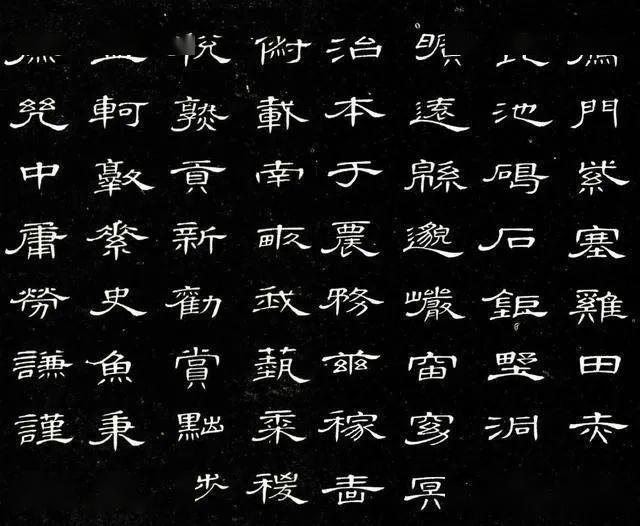 門紫塞雞田赤
池碣石鉅野洞
曠遠緜邈巖岫窈冥
治本于農務茲稼嗇
俶載南畝我藝黍稷
稅熟貢新勸賞黜陟
軻敦素史魚秉
幾中庸勞謙謹